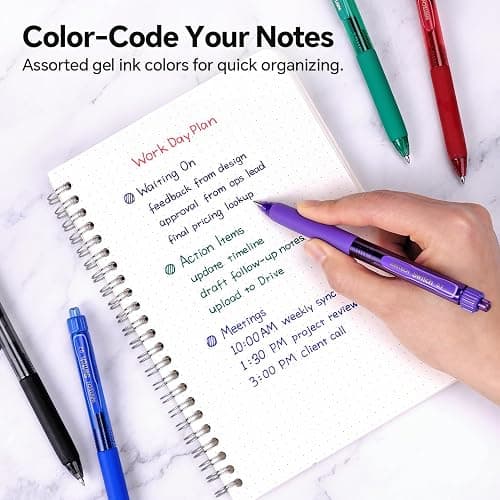 Color-Code Your Notes
Assorted gel ink colors for quick organizing.
Work Day Plan
Waiting On
feedback from design
approval from ops lead
final pricing lookup
Action Items
update timeline
draft follow-up notes
upload to Drive
Meetings
10:00 AM weekly sync
1:30 PM project review
3:00 PM client call